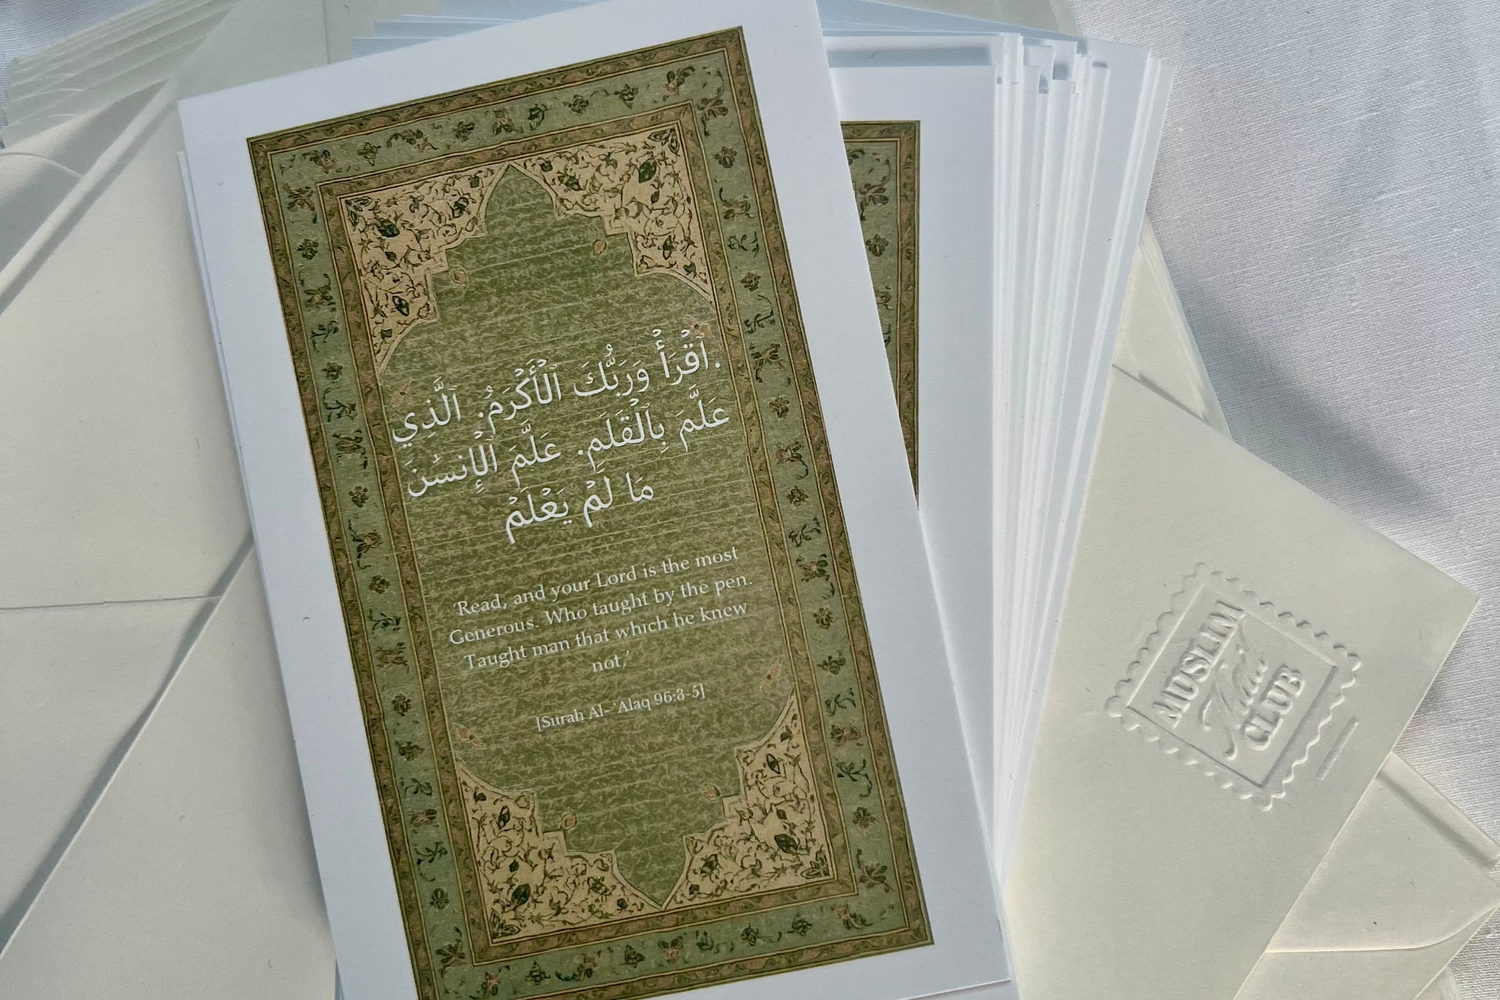 .ٱقْرَأْ وَرَبُّكَ ٱلْأَكْرَمُ. ٱلَّذِي
عَلَّمَ بِٱلْقَلَمِ. عَلَّمَ ٱلْإِنسَٰنَ
مَا لَمْ يَعْلَمْ
'Read, and your Lord is the most
Generous. Who taught by the pen.
Taught man that which he knew
not,'
[Surah Al-'Alaq 96:3-5]
MUSLIM
CLUB